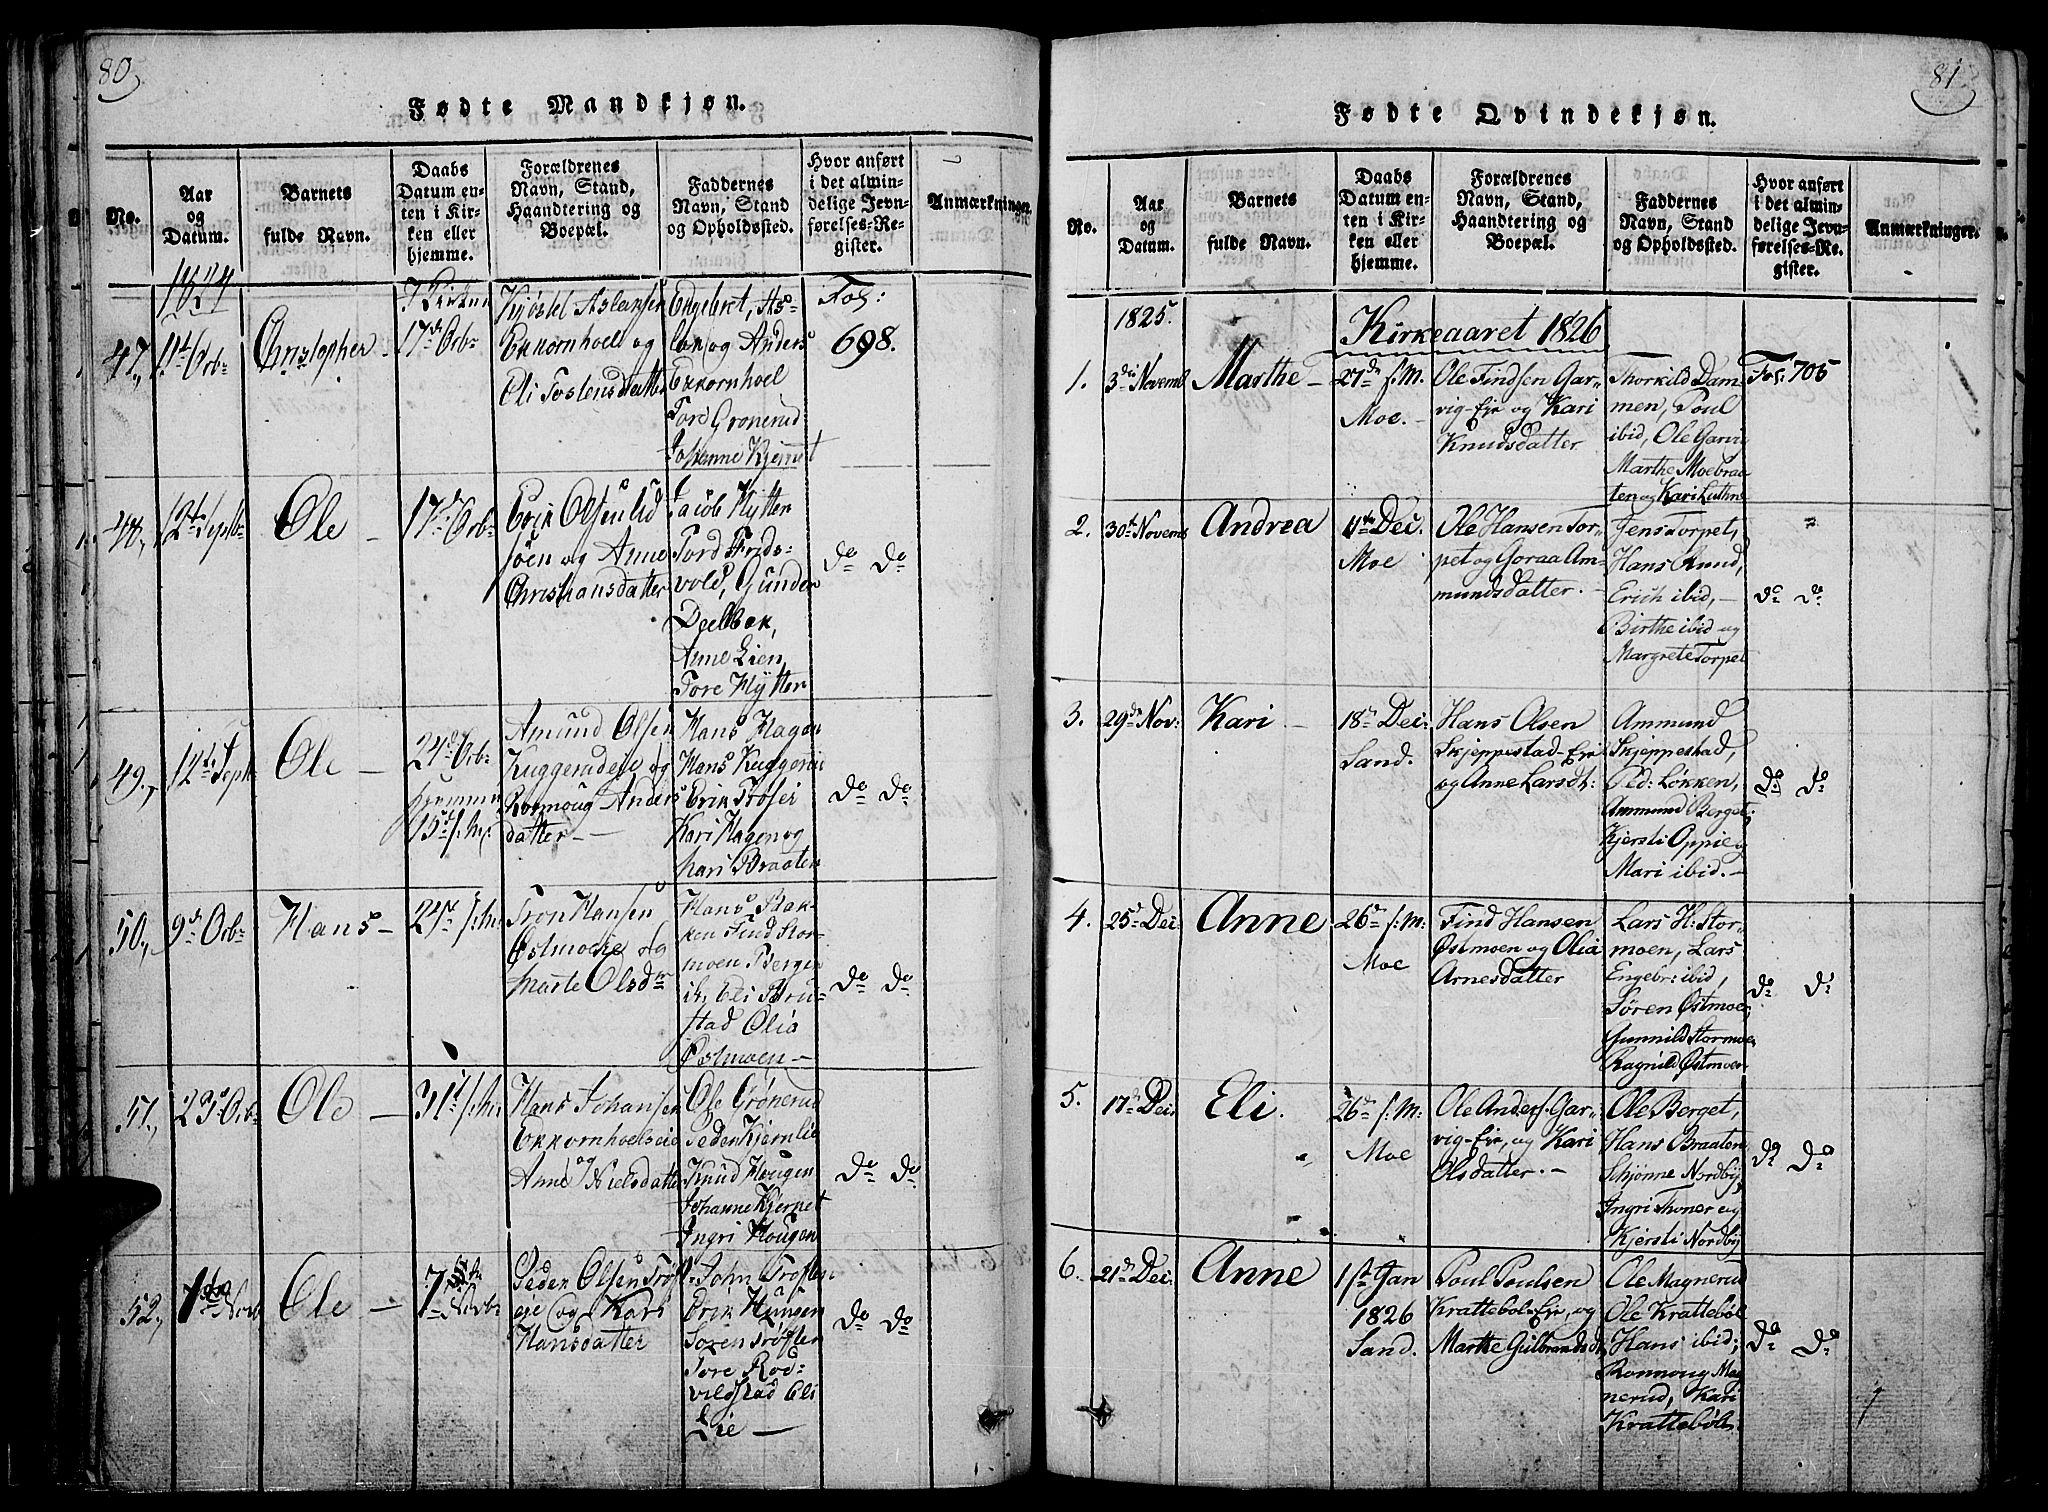 80
Fødte Mandkjøn.
No.
Aar og Datum.
Barnets fulde Navn.
Daabs Datum enten i Kirken eller hjemme.
Forældrenes Navn, Stand, Haandtering og Boepæl.
Faddernes Navn, Stand og Opholdssted.
Hvor anført i det almindelige Jevnførelses-Register.
Anmærkninger.
1824
47.
11t Octbr
Christopher
17d Octbr
Kjøstel Aslaksen
Ekkornhoel og
Eli Tostensdatter
Engebret, As-
lak og Anders
Ekkornhoel
Tore Grønerud
Johanne Kjernet
Fol:
698.
48.
12t Septbr
Ole
17d Octbr
Erik Olsen Lid
søen og Anne
Christiansdatter
Jacob Hytten
Tord Frids-
vold, Gunder
Deelbek,
Anne Lien
Tore Hytten
Do Do
49.
12te Septb
Ole
24d Octbr
Hjemme
15d
Amund Olsen
Kuggerudeie og
Ronnoug Anders
datter
Hans Hagen
Hans Kuggerud
Erik Frøser
Kari Hagen og
Mari Braaten
Do Do
50.
9d Octbr
Hans
24d
Tron Hansen
Østmoeie og
Marte Olsdr
Hans Bak-
ken Find Stor-
moen Berger
ib, Eli Bru-
stad Olia
Østmoen
Do Do
51.
23d Octbr
Ole
31t
Hans Johansen
Ekkornhoelseie
og
Anne Nielsdatter
Ole Grønerud
Peder Kjernlie
Knud Hougen
Johanne Kjernet
Ingri Hougen
Do Do
52.
1ste Novb
Ole
7de Novbr
Peder Olsen Frøs-
eie og Kari
Hansdatter
John Frøslen
Erik Haugen
Soren Frøslen
Tore Rod-
vilstad Eli
Lie
Do Do
81
Fødte Qvindekjøn.
No.
Aar og Datum.
Barnets fulde Navn.
Daabs Datum enten i Kirken eller hjemme.
Forældrenes Navn, Stand, Haandtering og Boepæl.
Faddernes Navn, Stand og Opholdssted.
Hvor anført i det almindelige Jevnførelses-Register.
Anmærkninger.
1825.
Kirkeaaret 1826
1.
3die Novemb
Marthe
27d s. M.
Moe.
Ole Findsen Gar-
vig-Eje og Kari
Knudsdatter
Thorkild Dam-
men, Poul
ibid, Ole Garvig
Marthe Moebraa-
ten og Kari Luthn
Fol. 705
2.
30te Novemb
Andrea
11te Dec.
Moe
Ole Hansen Tor-
pet og Goraa Am-
mundsdatter.
Jens Torpet,
Hans Rund,
Erich ibid,
Birthe ibid og
Margrete Torpet
Do Do
3.
29de Nov:
Kari
18d Dec:
Sand.
Hans Olsen
Skjeppestad-Eje
og Anne Larsdt:
Ammund
Skjeppestad,
Ped: Løkken,
Ammund Berget,
Kjersti Oppie og
Mari ibid.
Do Do
4.
25d Dec:
Anne
26d s: M:
Moe
Find Hansen
Østmoen og Olia
Arnesdatter
Lars H: Stor-
moen, Lars
Engebr: ibid,
Søren Østmoe,
Gunnild Stormoe,
Ragnild Østmoe.
Do Do
5.
17de Dec.
Eli.
26d s: M:
Moe
Ole Anders: Gar-
vig-Eje, og Kari
Olsdatter.
Ole Berget,
Hans Braaten
Schjønne Nordby,
Ingri Thoner og
Kjersti Nordby
Do Do
6.
21de Dec.
Anne
1ste Jan
1826
Sand.
Poul Poulsen
Krattebøl-Eje, og
Marthe Gulbrandsdt.
Ole Magnerud
Ole Krattebøl
Hans ibid;
Ronnoug Mag-
nerud, Kari
Krattebøl.
Do Do